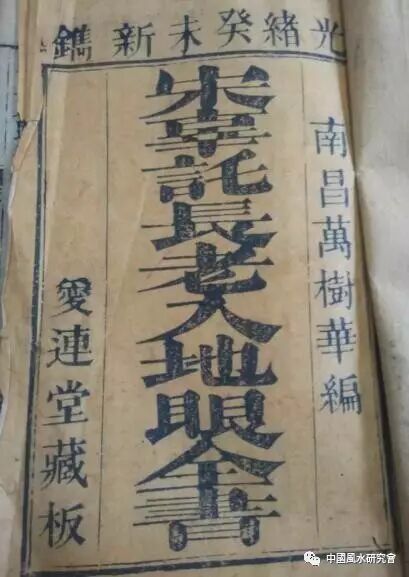 光緒癸未新鐫
南昌萬樹華編
宋辜託長老入地眼全書
愛連堂藏板
中國風水研究會